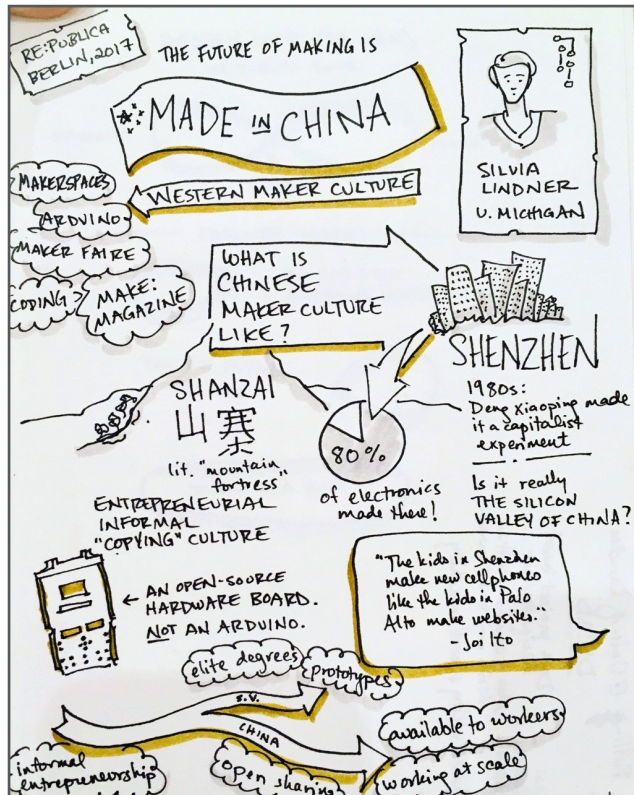 RE:PUBLICA
BERLIN, 2017
THE FUTURE OF MAKING IS
MADE IN CHINA
SILVIA
LINDNER
U. MICHIGAN
WESTERN MAKER CULTURE
MAKERSPACES
ARDUINO
MAKER FAIRE
CODING
MAKE:
MAGAZINE
WHAT IS
CHINESE
MAKER CULTURE
LIKE?
SHENZHEN
1980s:
Deng Xiaoping made
it a capitalist
experiment
Is it really
THE SILICON
VALLEY OF CHINA?
80%
of electronics
made there!
SHANZAI
山寨
lit. "mountain
fortress"
ENTREPRENEURIAL
INFORMAL
"COPYING" CULTURE
← AN OPEN-SOURCE
HARDWARE BOARD.
NOT AN ARDUINO.
"The kids in Shenzhen
make new cellphones
like the kids in Palo
Alto make websites."
- Joi Ito
elite degrees
prototypes
S.V.
CHINA
informal
entrepreneurship
open sharing
available to workers
working at scale